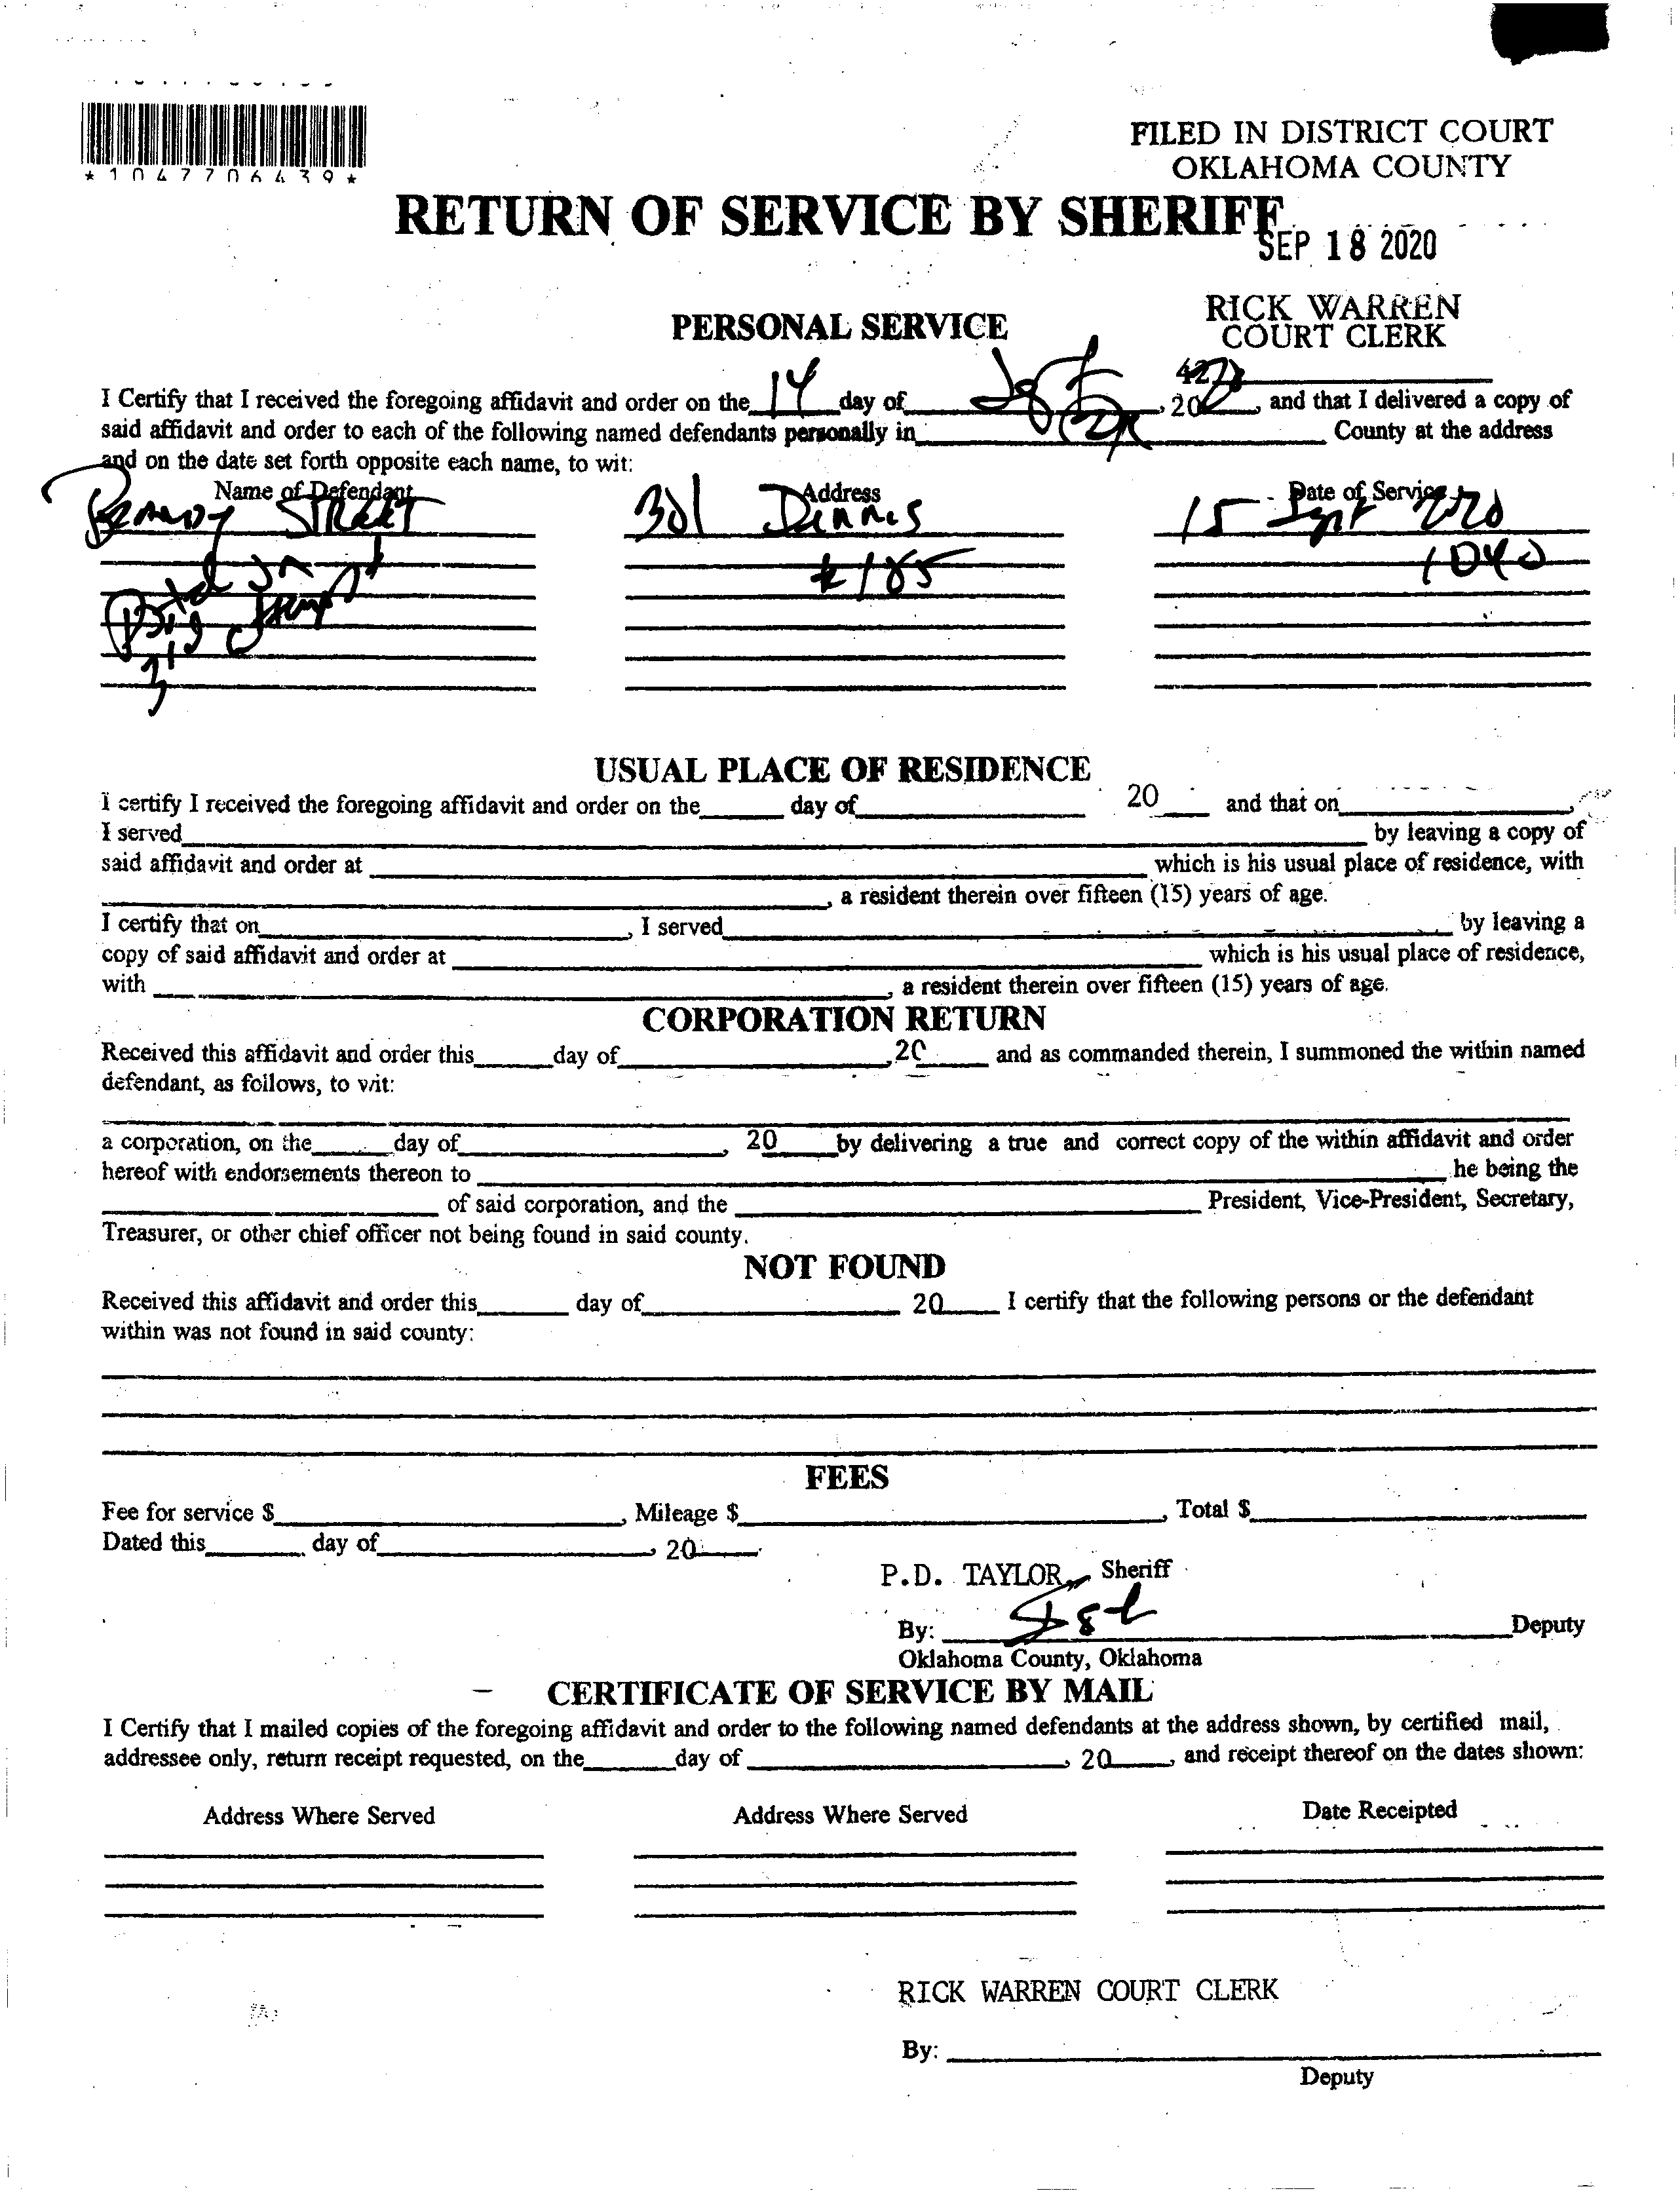 *1047706439*
FILED IN DISTRICT COURT
OKLAHOMA COUNTY
RETURN OF SERVICE BY SHERIFF
SEP 18 2020
RICK WARREN
COURT CLERK
PERSONAL SERVICE
I Certify that I received the foregoing affidavit and order on the 14 day of , 20 , and that I delivered a copy of
said affidavit and order to each of the following named defendants personally in County at the address
and on the date set forth opposite each name, to wit:
Name of Defendant Address Date of Service
301 Dennis 15 Sept 2020
#185 1040
USUAL PLACE OF RESIDENCE
I certify I received the foregoing affidavit and order on the day of 20 and that on ,
I served by leaving a copy of
said affidavit and order at which is his usual place of residence, with
, a resident therein over fifteen (15) years of age.
I certify that on , I served by leaving a
copy of said affidavit and order at which is his usual place of residence,
with , a resident therein over fifteen (15) years of age.
CORPORATION RETURN
Received this affidavit and order this day of , 20 and as commanded therein, I summoned the within named
defendant, as follows, to wit:
a corporation, on the day of , 20 by delivering a true and correct copy of the within affidavit and order
hereof with endorsements thereon to he being the
of said corporation, and the President, Vice-President, Secretary,
Treasurer, or other chief officer not being found in said county.
NOT FOUND
Received this affidavit and order this day of 20 I certify that the following persons or the defendant
within was not found in said county:
FEES
Fee for service $ , Mileage $ , Total $
Dated this day of , 20
P.D. TAYLOR, Sheriff
By: Deputy
Oklahoma County, Oklahoma
CERTIFICATE OF SERVICE BY MAIL
I Certify that I mailed copies of the foregoing affidavit and order to the following named defendants at the address shown, by certified mail,
addressee only, return receipt requested, on the day of , 20 , and receipt thereof on the dates shown:
Address Where Served Address Where Served Date Receipted
RICK WARREN COURT CLERK
By:
Deputy